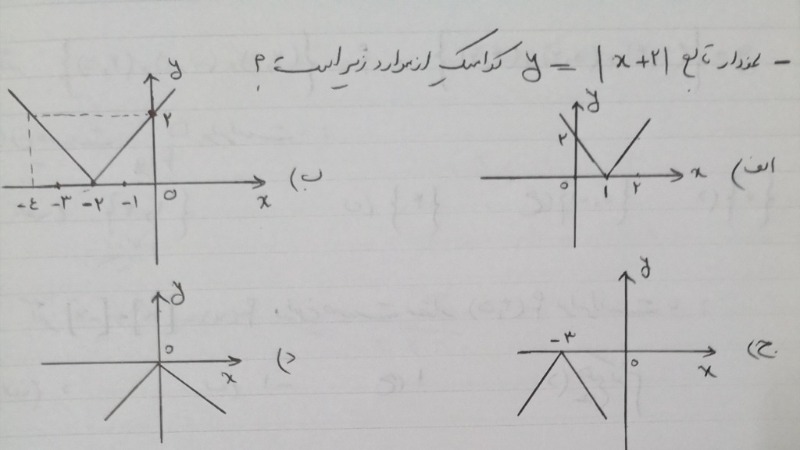 - نمودار تابع y = |x+۲| کدامیک از موارد زیر است؟
الف) y ۲ ۰ ۱ ۲ x
ب) y ۲ -٤ -۳ -۲ -۱ ۰ x
ج) y -۳ ۰ x
د) y ۰ x